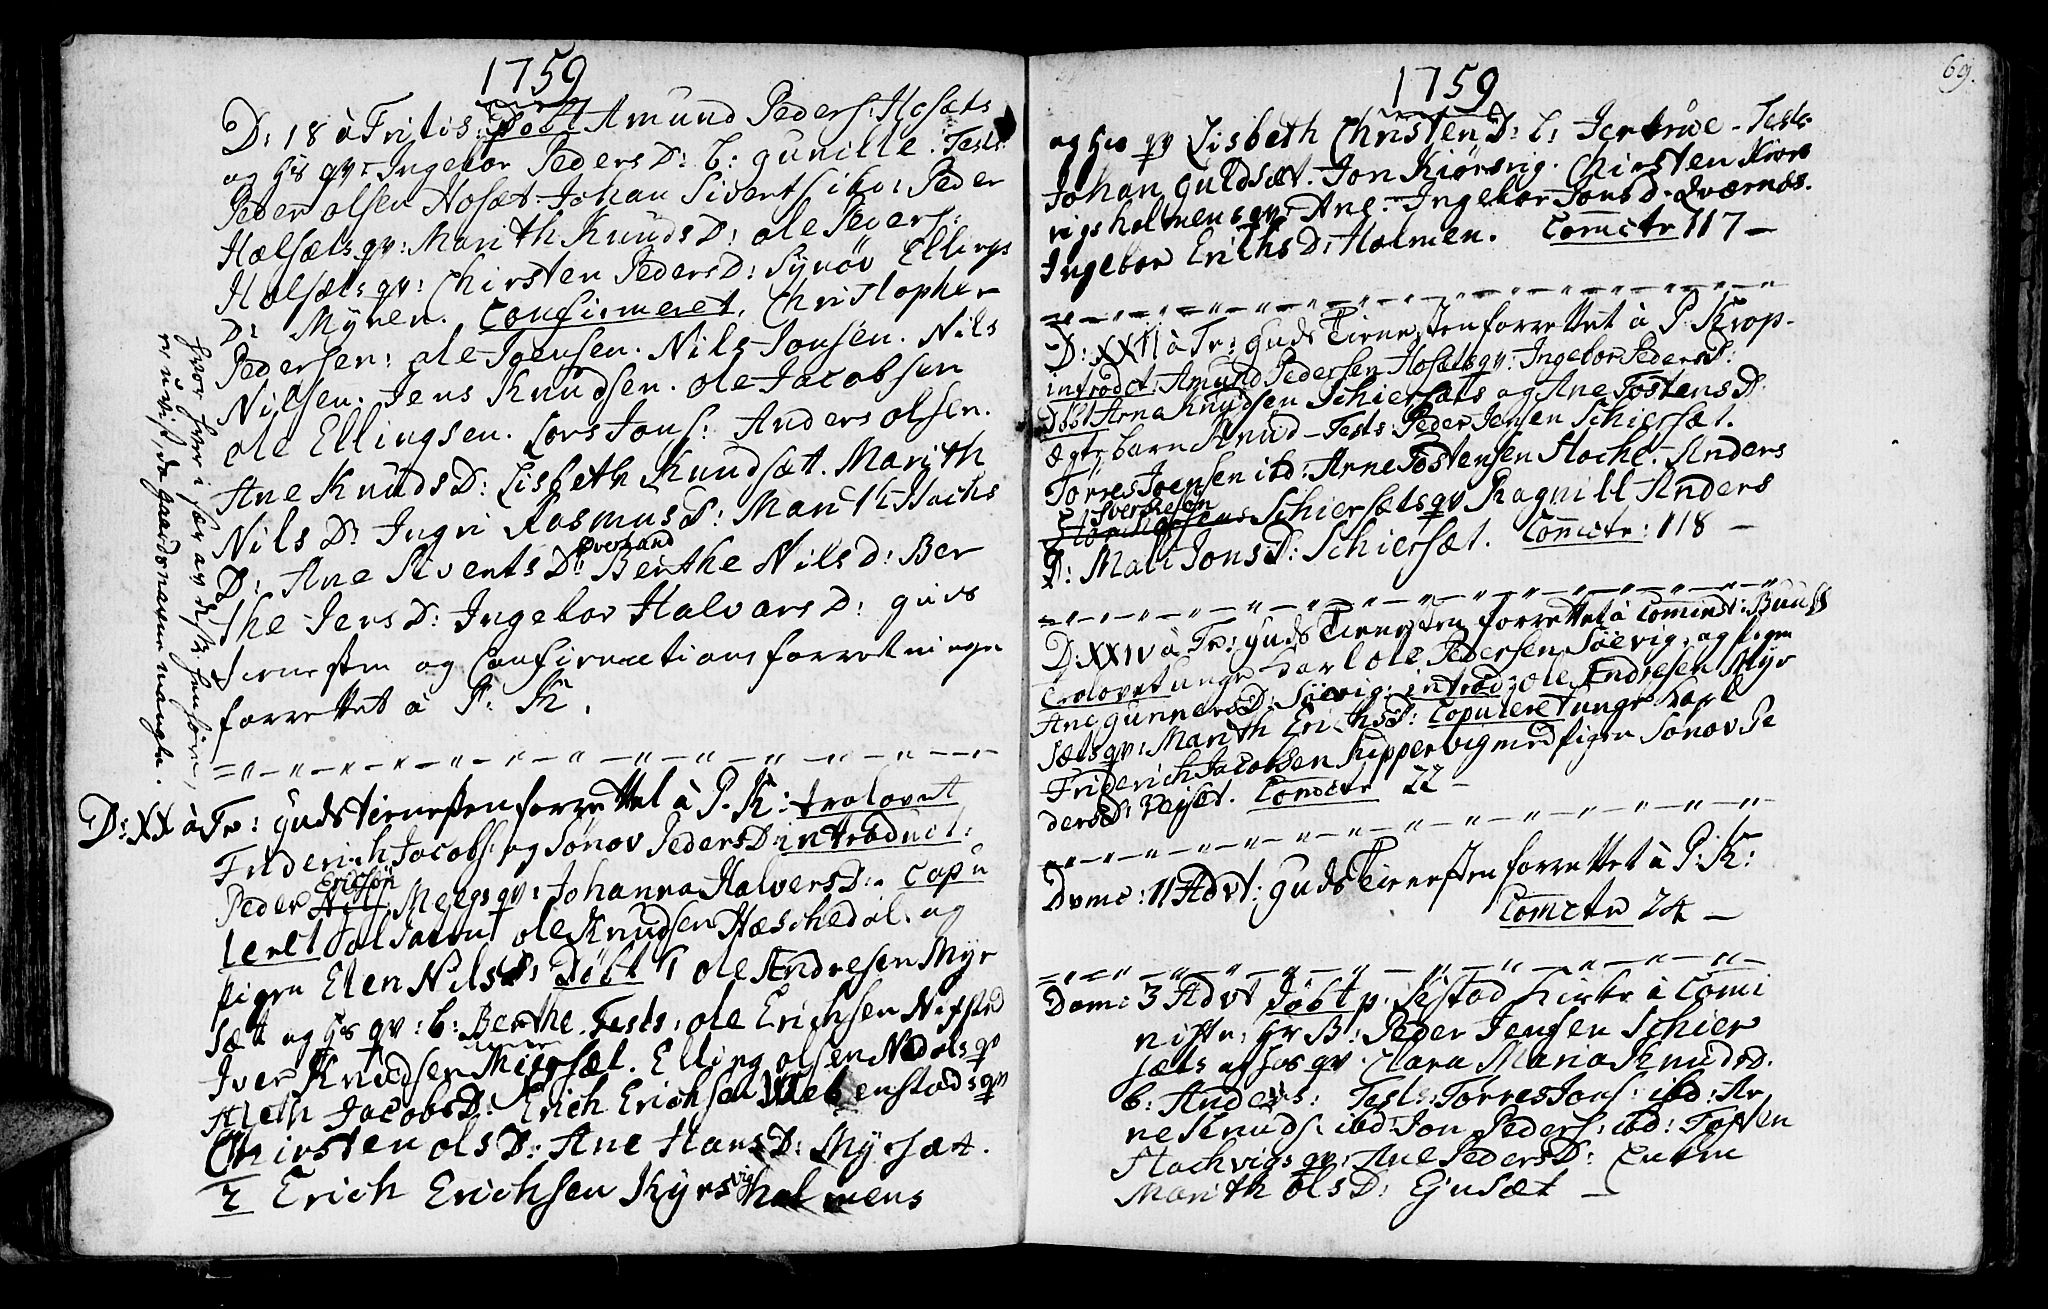 1759
D: 18 à Tritis: Døbt Amund Peders: Hosæts
og Hs qv: Ingebor PedersD: b: gunille. Tests:
Peder olsen Hosæt. Johan Sivertsibd: Peder
Hælsæts qv: Marith KnudsD: ole Peders:
Hælsæts qv: Chirsten PedersD: Synøv Ellings
D: Myren. Confirmeret, Christopher
Pedersen: ole Joensen. Nils Jonsen. Nils
Nielsen. Jens Knudsen. ole Jacobsen
ole Ellingsen. Lors Jons: Anders olsen.
Ane KnudsD: Lisbeth Knudsæt. Marith
Nils D: Ingri RasmusD: Marith Hachs
D: Ane SivertsD: Overland Berthe Nils D: Ber
the JensD: Ingebor HalvarsD: guds
Tienesten og Confirmations forretningen
forrettet à P: K.
hvor hver i sær av de henhøre,
er uvist, da gaardnavne mangle.
D: XX à Tr: gudstienesten forrettet à P. K: trolovet
Friderich Jacobs: og Sønov PedersD: introduct:
Peder Erichsøn Megs qv: Johanna HalversD: Copu
leret Soldaten ole Knudsen Hæschedal og
pigen Elen NilsD: Døbt 1 ole Andresen Myr
sæt og Hs qv: b: Berthe. Tests: ole Erichsen Nifsted
Iver Knudsen Miersæt. Elling olsen Nedals qv
Aleth JacobsD: Erich Erichsen Mebenstads qv
Chirsten olsD: Ane HansD: Myrsæt.
2 Erich Erichsen Kyrsvigholmens
1759
69.
og Hs qv Lisbeth ChristenD: b: Jertrue. Tests
Johan guldsæt. Jon Kiørsvig. Chirsten Kiørs
vigsholmens qv: Ane. Ingebor Jonsd: Qværnæs.
Ingebor ErichsD: Holmen. Comctr 117 –
D: XXII à Tr: guds Tienesten forrettet à P: Krop.
introdct: Amund Pedersen Hosæts qv: Ingebor PedersD:
Døbt Arne Knudsen Schiersæts og Ane TostensD:
ægte barn Knud – Tests: Peder Jensen Schiersæt.
Tørres Joensen ibd: Arne Tostensen Hoche. Anders
Sverchesen Schiersæts qv Ragnill Anders
D: Mali JonsD: Schiersæt. Comctr: 118 –
D: XXIV à Tr: guds Tienesten forrettet à Cominst: Buuss
Trolovet unge karl ole Pedersen Søevig, og pigen
Ane gunnersD: Søevig: introd: ole Andresen Myr
sæts qv: Marith ErichsD: Copuleret unge karl
Friderich Jacobsen Kippervig med pigen Sønov Pe
dersD: Vejset. Comctr 22 –
Dome: 11 Advt: guds Tienesten forrettet à P: K:
Comctr 24 –
Dom: 3 Advt Døbt p. Testad Kirke à Comi
nistr: Hr B: Peder Jensen Schier
sæts et Hs qv. Clara Maria KnudsD.
b: Anders: Tests: Tørres Jons: ibd: Ar
ne Knuds: ibd: Jon Peders: ibd: Tosten
Hachvigs qv: Ane PedersD: Enken
Marith olsD: Ejusæt –